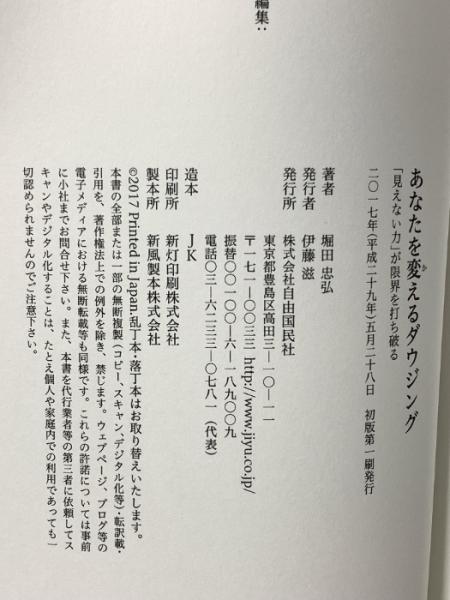 あなたを変えるダウジング
か
「見えない力」が限界を打ち破る
二〇一七年(平成二十九年)五月二十八日　初版第一刷発行
著者　堀田忠弘
発行者　伊藤滋
発行所　株式会社自由国民社
東京都豊島区高田三―一〇―一一
〒一七一―〇〇三三 http://www.jiyu.co.jp/
振替〇〇一〇〇―六―一八九〇〇九
電話〇三―六二三三―〇七八一（代表）
造本　JK
印刷所　新灯印刷株式会社
製本所　新風製本株式会社
©2017 Printed in Japan. 乱丁本・落丁本はお取り替えいたします。
本書の全部または一部の無断複製（コピー、スキャン、デジタル化等）・転訳載・
引用を、著作権法上での例外を除き、禁じます。ウェブページ、ブログ等の
電子メディアにおける無断転載等も同様です。これらの許諾については事前
に小社までお問合せ下さい。また、本書を代行業者等の第三者に依頼してス
キャンやデジタル化することは、たとえ個人や家庭内での利用であっても一
切認められませんのでご注意下さい。
編集: